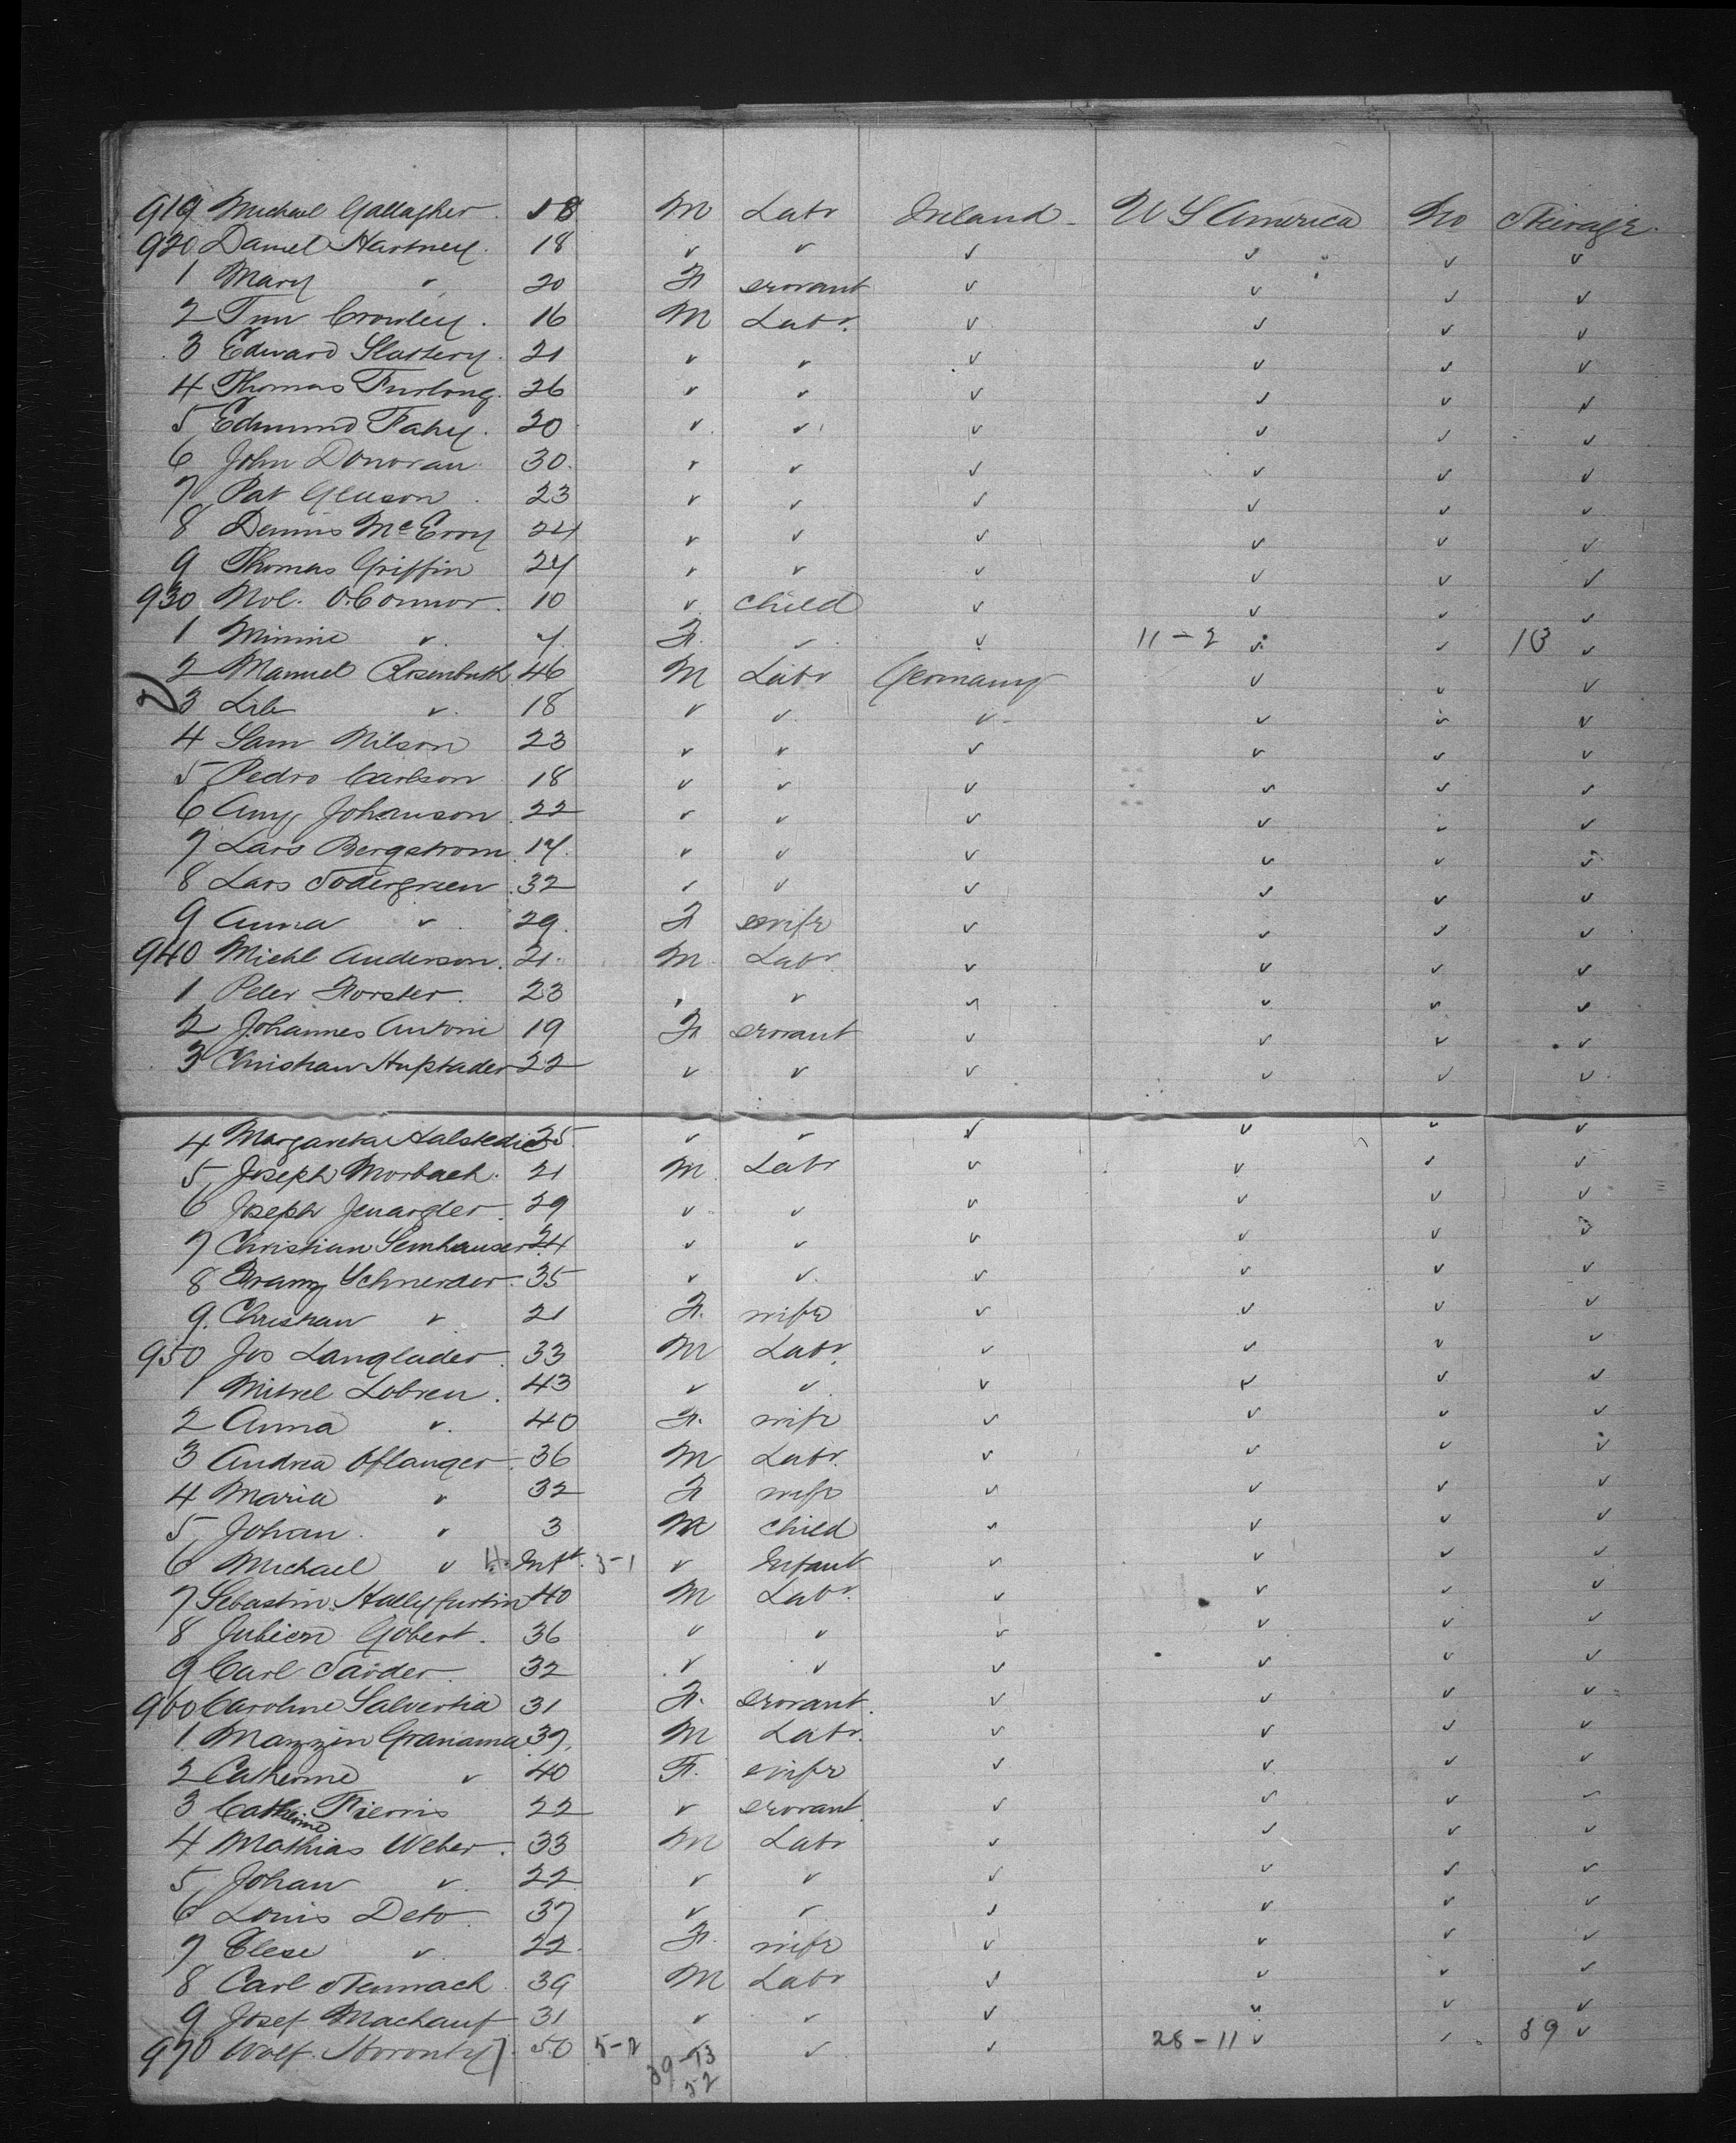 919 Michael Gallagher. 18 M Labr Ireland U S America No Steirage.
920 Daniel Hartney. 18 " " " " " "
1 Mary " 20 F servant " " " "
2 Tim Crowley. 16 M Labr. " " " "
3 Edward Slattery. 21 " " " " " "
4 Thomas Furlong. 26 " " " " " "
5 Edmund Fahy. 20 " " " " " "
6 John Donovan 30. " " " " " "
7 Pat Gleeson 23 " " " " " "
8 Dennis McEvoy 24 " " " " " "
9 Thomas Griffin 24 " " " " " "
930 O'Connor. 10 " child " " " "
1 Minnie " F. " " 11-2 " " "
2 Manuel Rosenbuth 46 M Labr Germany " " "
3 " 18 " " " " " "
4 Sam Nilson 23 " " " " " "
5 Pedro Carlson 18 " " " " " "
6 Johanson 22 " " " " " "
7 Lars Bergstrom " " " " " "
8 Lars Sodergreen 32 " " " " " "
9 Anna " 29. F wife " " " "
940 Michl Anderson. 21. M Labr " " " "
1 Peter Forster. 23 " " " " " "
2 Johannes Antoni 19 F servant " " " "
3 Christian 22 " " " " " "
4 Margaretha 25 " " " " " "
5 Joseph Morbach. 21 M Labr " " " "
6 Joseph 29 " " " " " "
7 Christian Semhauser 24 " " " " " "
8 Franz Schneider. 35 " " " " " "
9. Christian " 21 F. wife " " " "
950 Jos Langlader. 33 M Labr. " " " "
1 Lobren. 43 " " " " " "
2 Anna " 40 F. wife " " " "
3 Andrea Oflanger. 36 M Labr. " " " "
4 Maria " 32 F wife " " " "
5 Johan. " 3 M child " " " "
6 Michael " Inft. 3-1 " Infant " " " "
7 Sebastin 40 M Labr. " " " "
8 Gobert. 36 " " " " " "
9 Carl 32 " " " " " "
960 Caroline Salvertia 31 F. servant. " " " "
1 Mazzin M Labr. " " " "
2 Catherine " 40 F. wife " " " "
3 Catherine Pierris 22 " servant " " " "
4 Mathias Weber. 33 M Labr " " " "
5 Johan " 22 " " " " " "
6 Louis Deto. 37 " " " " " "
7 Elese " 22. F. wife " " " "
8 Carl 39 M Labr " " " "
9 Josef Machauf 31 " " " " " "
970 Wolf. 50 5-2 " " 28-11 " " 39 "
39-13
52